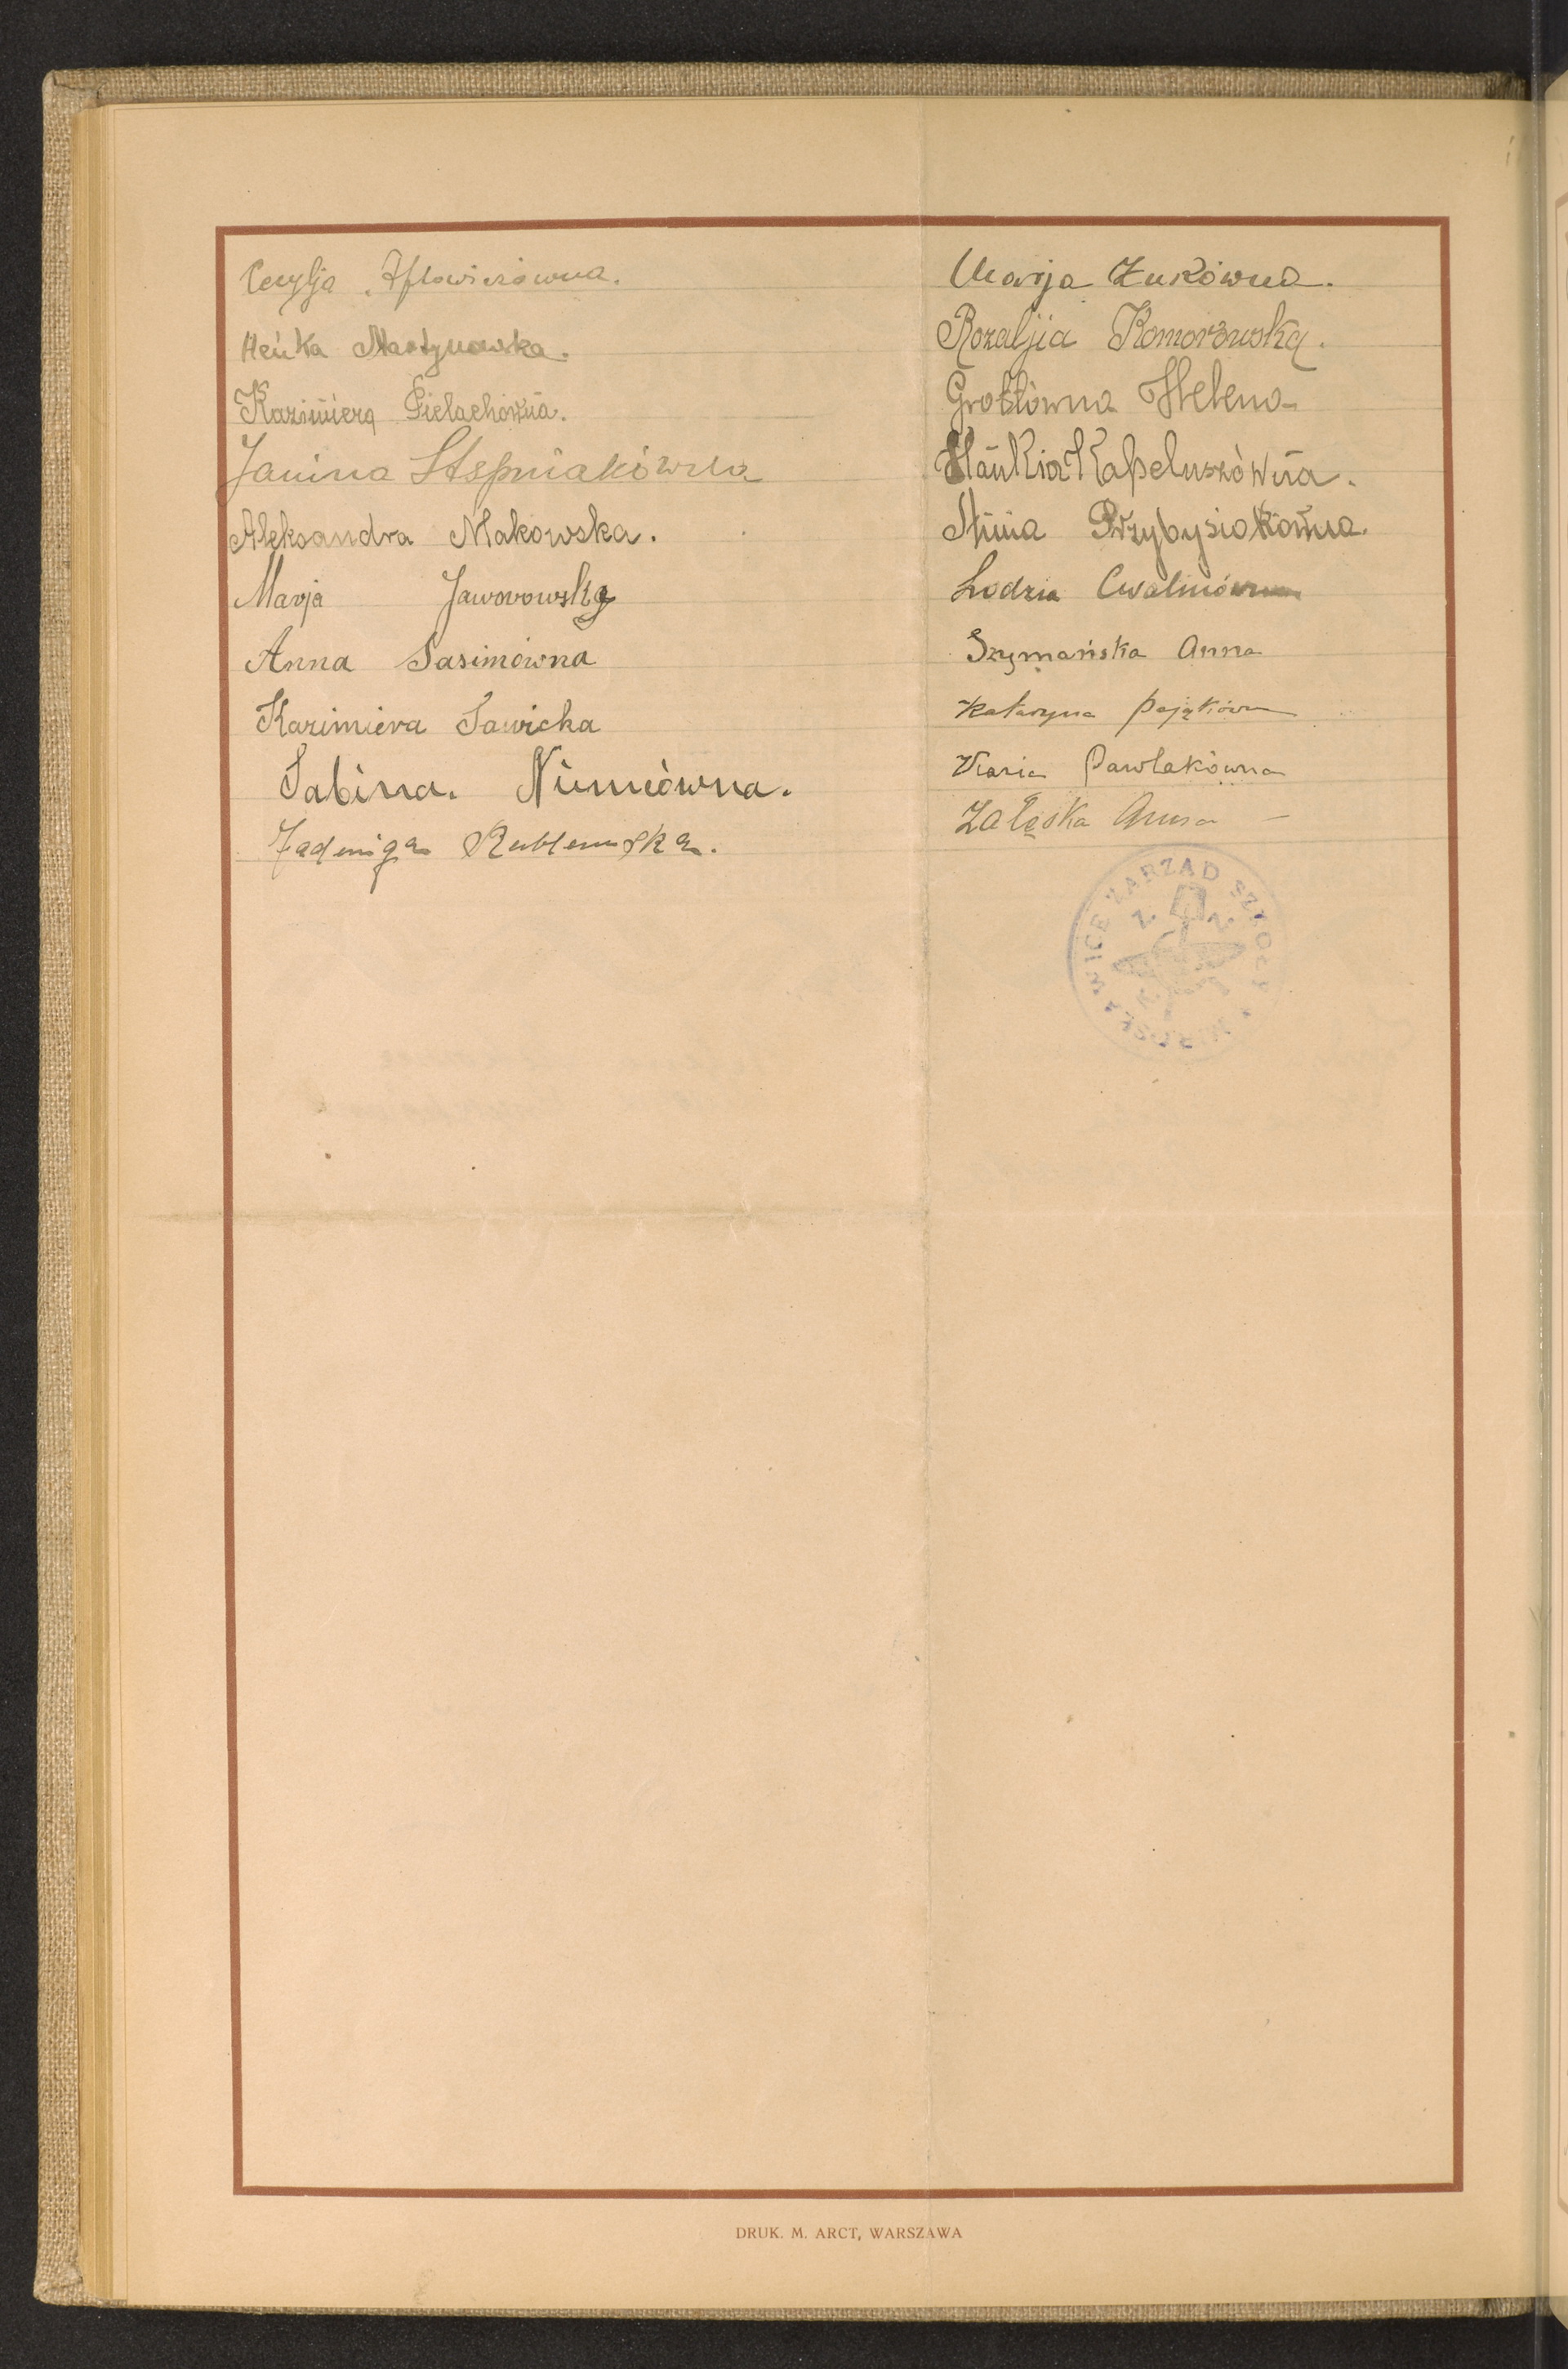 Cecylja
Heńka Martynowska.
Kazimiera Pielachówna.
Janina Stępniakówna
Aleksandra Makowska.
Marja Jaworowska
Anna Sasimówna
Kazimiera Sawicka
Sabina. Nimiówna.
Jadwiga Rublewska.
Marja Żukówna.
Rozaljia Komorowska.
Grotłówna Helena
Hańkia Kapeluszówna.
Przybysiakówna.
Lodzia Cwalinówna
Szymańska Anna
Katarzyna Pająkówna
Maria Pawlakówna
Załęska Anna
ZARZĄD SZKOŁY
DRUK. M. ARCT, WARSZAWA